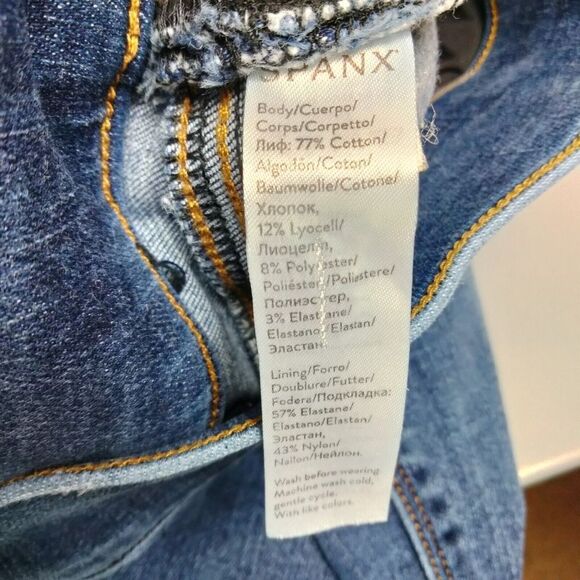 SPANX
Body/Cuerpo/
Corps/Corpetto/
Лиф: 77% Cotton/
Algodón/Coton/
Baumwolle/Cotone/
Хлопок,
12% Lyocell/
Лиоцелл,
8% Polyester/
Poliéster/Poliestere/
Полиэстер,
3% Elastane/
Elastano/Elastan/
Эластан
Lining/Forro/
Doublure/Futter/
Fodera/Подкладка:
57% Elastane/
Elastano/Elastan/
Эластан,
43% Nylon/
Nailon/Нейлон.
Wash before wearing
Machine wash cold,
gentle cycle.
With like colors.